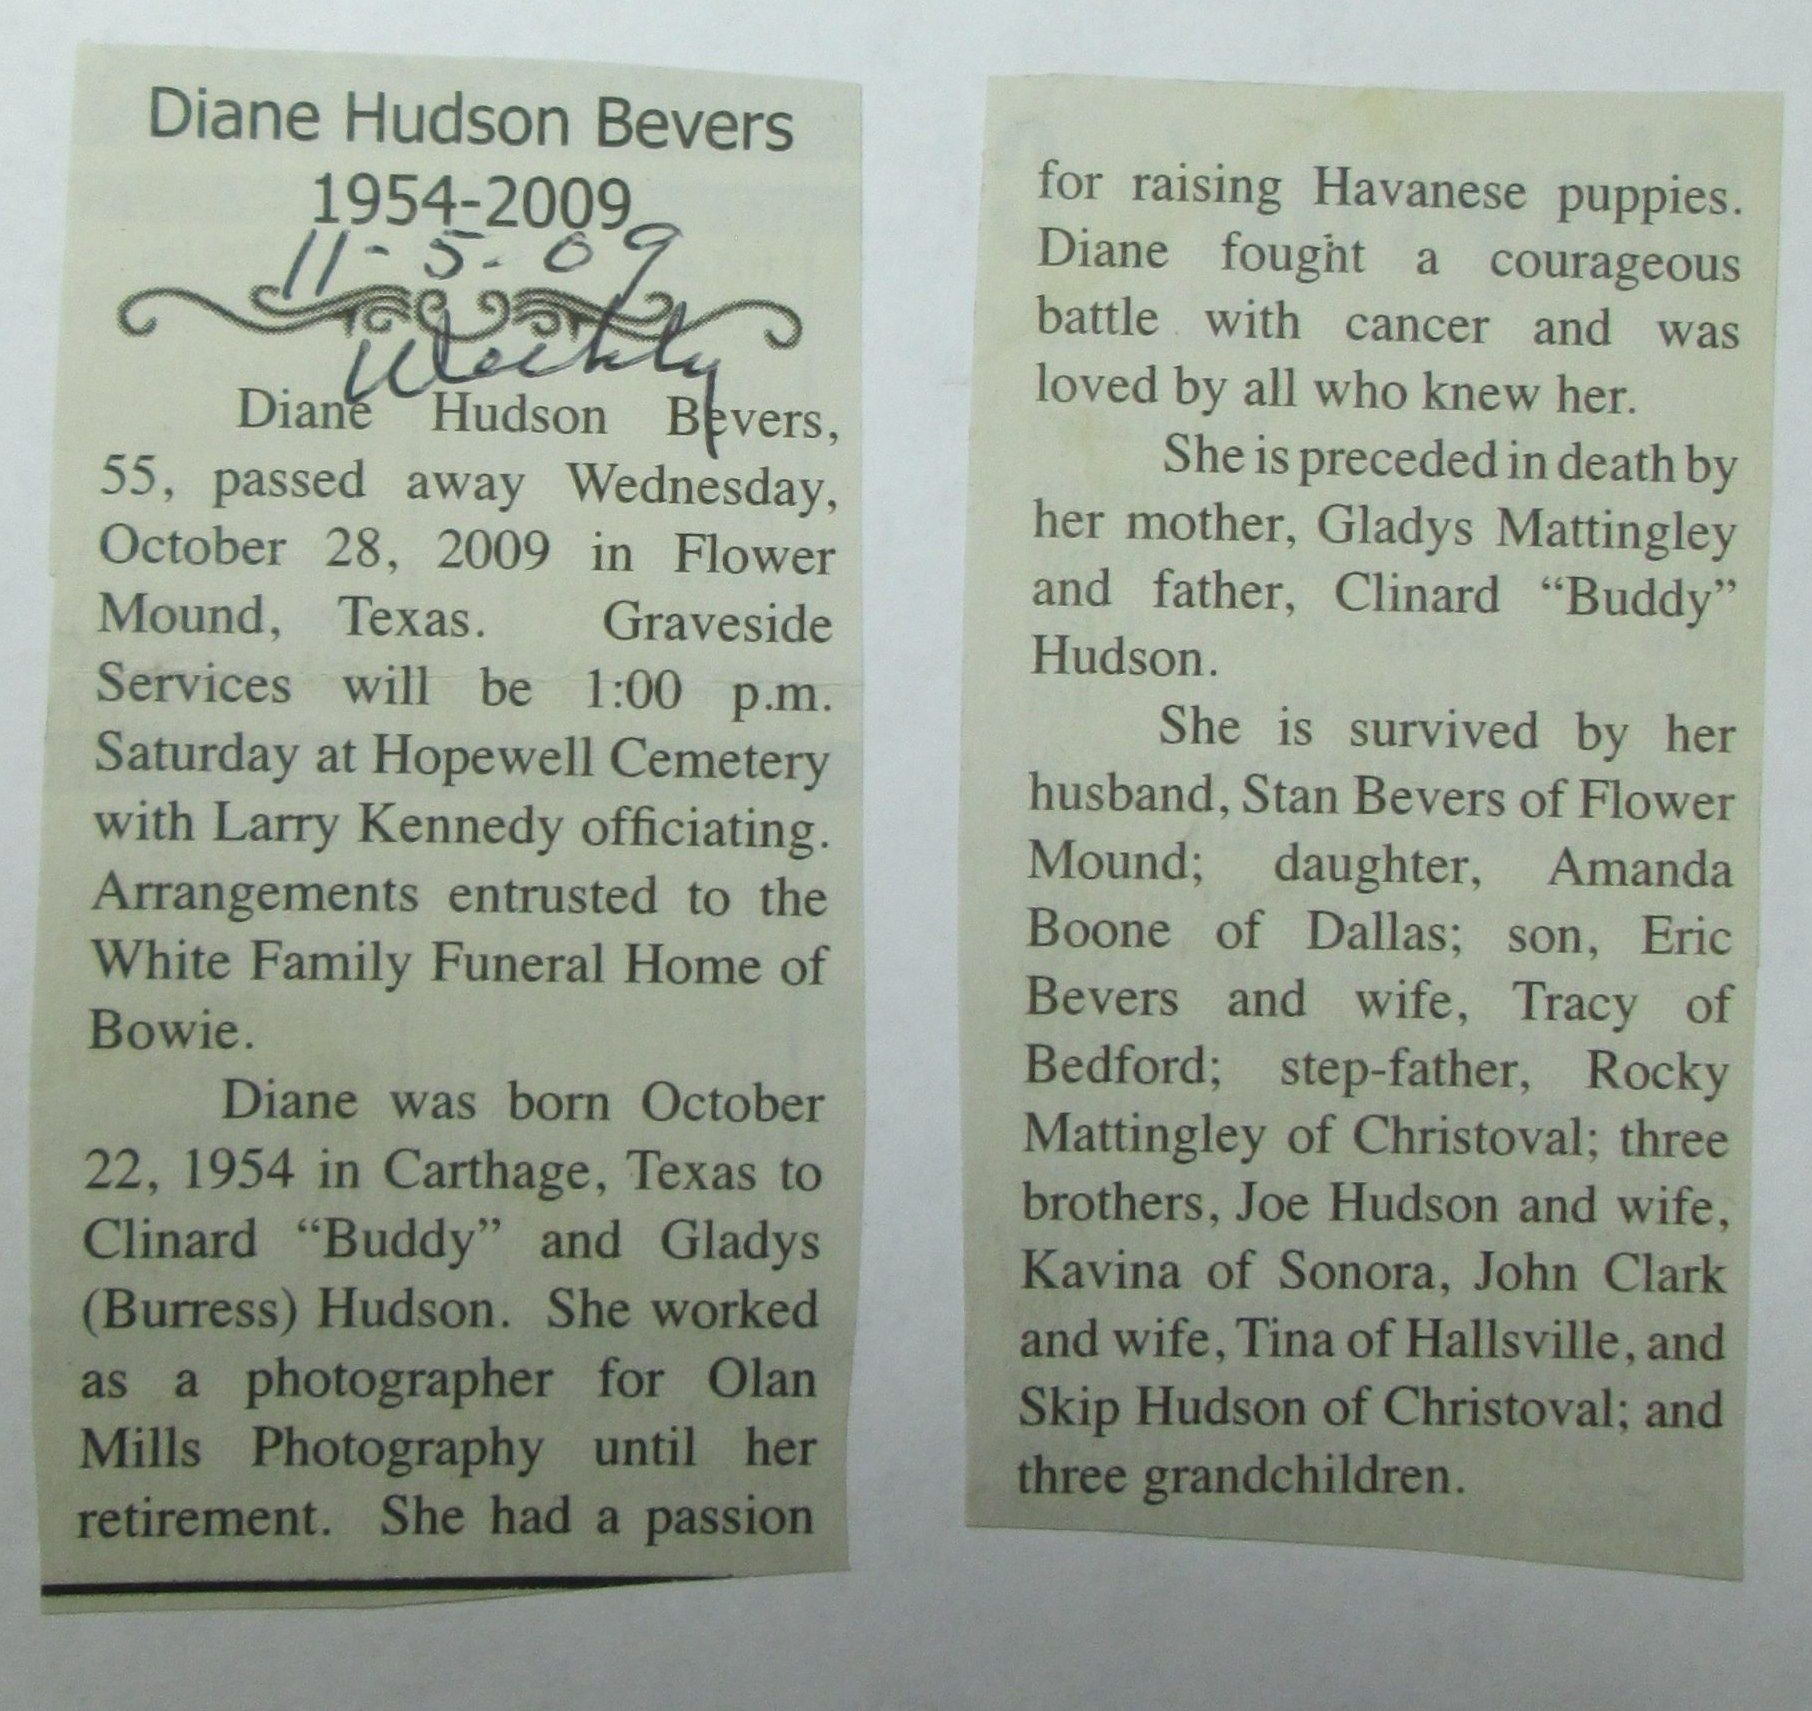 Diane Hudson Bevers
1954-2009
11-5-09
Weekly
Diane Hudson Bevers,
55, passed away Wednesday,
October 28, 2009 in Flower
Mound, Texas. Graveside
Services will be 1:00 p.m.
Saturday at Hopewell Cemetery
with Larry Kennedy officiating.
Arrangements entrusted to the
White Family Funeral Home of
Bowie.
Diane was born October
22, 1954 in Carthage, Texas to
Clinard “Buddy” and Gladys
(Burress) Hudson. She worked
as a photographer for Olan
Mills Photography until her
retirement. She had a passion
for raising Havanese puppies.
Diane fought a courageous
battle with cancer and was
loved by all who knew her.
She is preceded in death by
her mother, Gladys Mattingley
and father, Clinard “Buddy”
Hudson.
She is survived by her
husband, Stan Bevers of Flower
Mound; daughter, Amanda
Boone of Dallas; son, Eric
Bevers and wife, Tracy of
Bedford; step-father, Rocky
Mattingley of Christoval; three
brothers, Joe Hudson and wife,
Kavina of Sonora, John Clark
and wife, Tina of Hallsville, and
Skip Hudson of Christoval; and
three grandchildren.